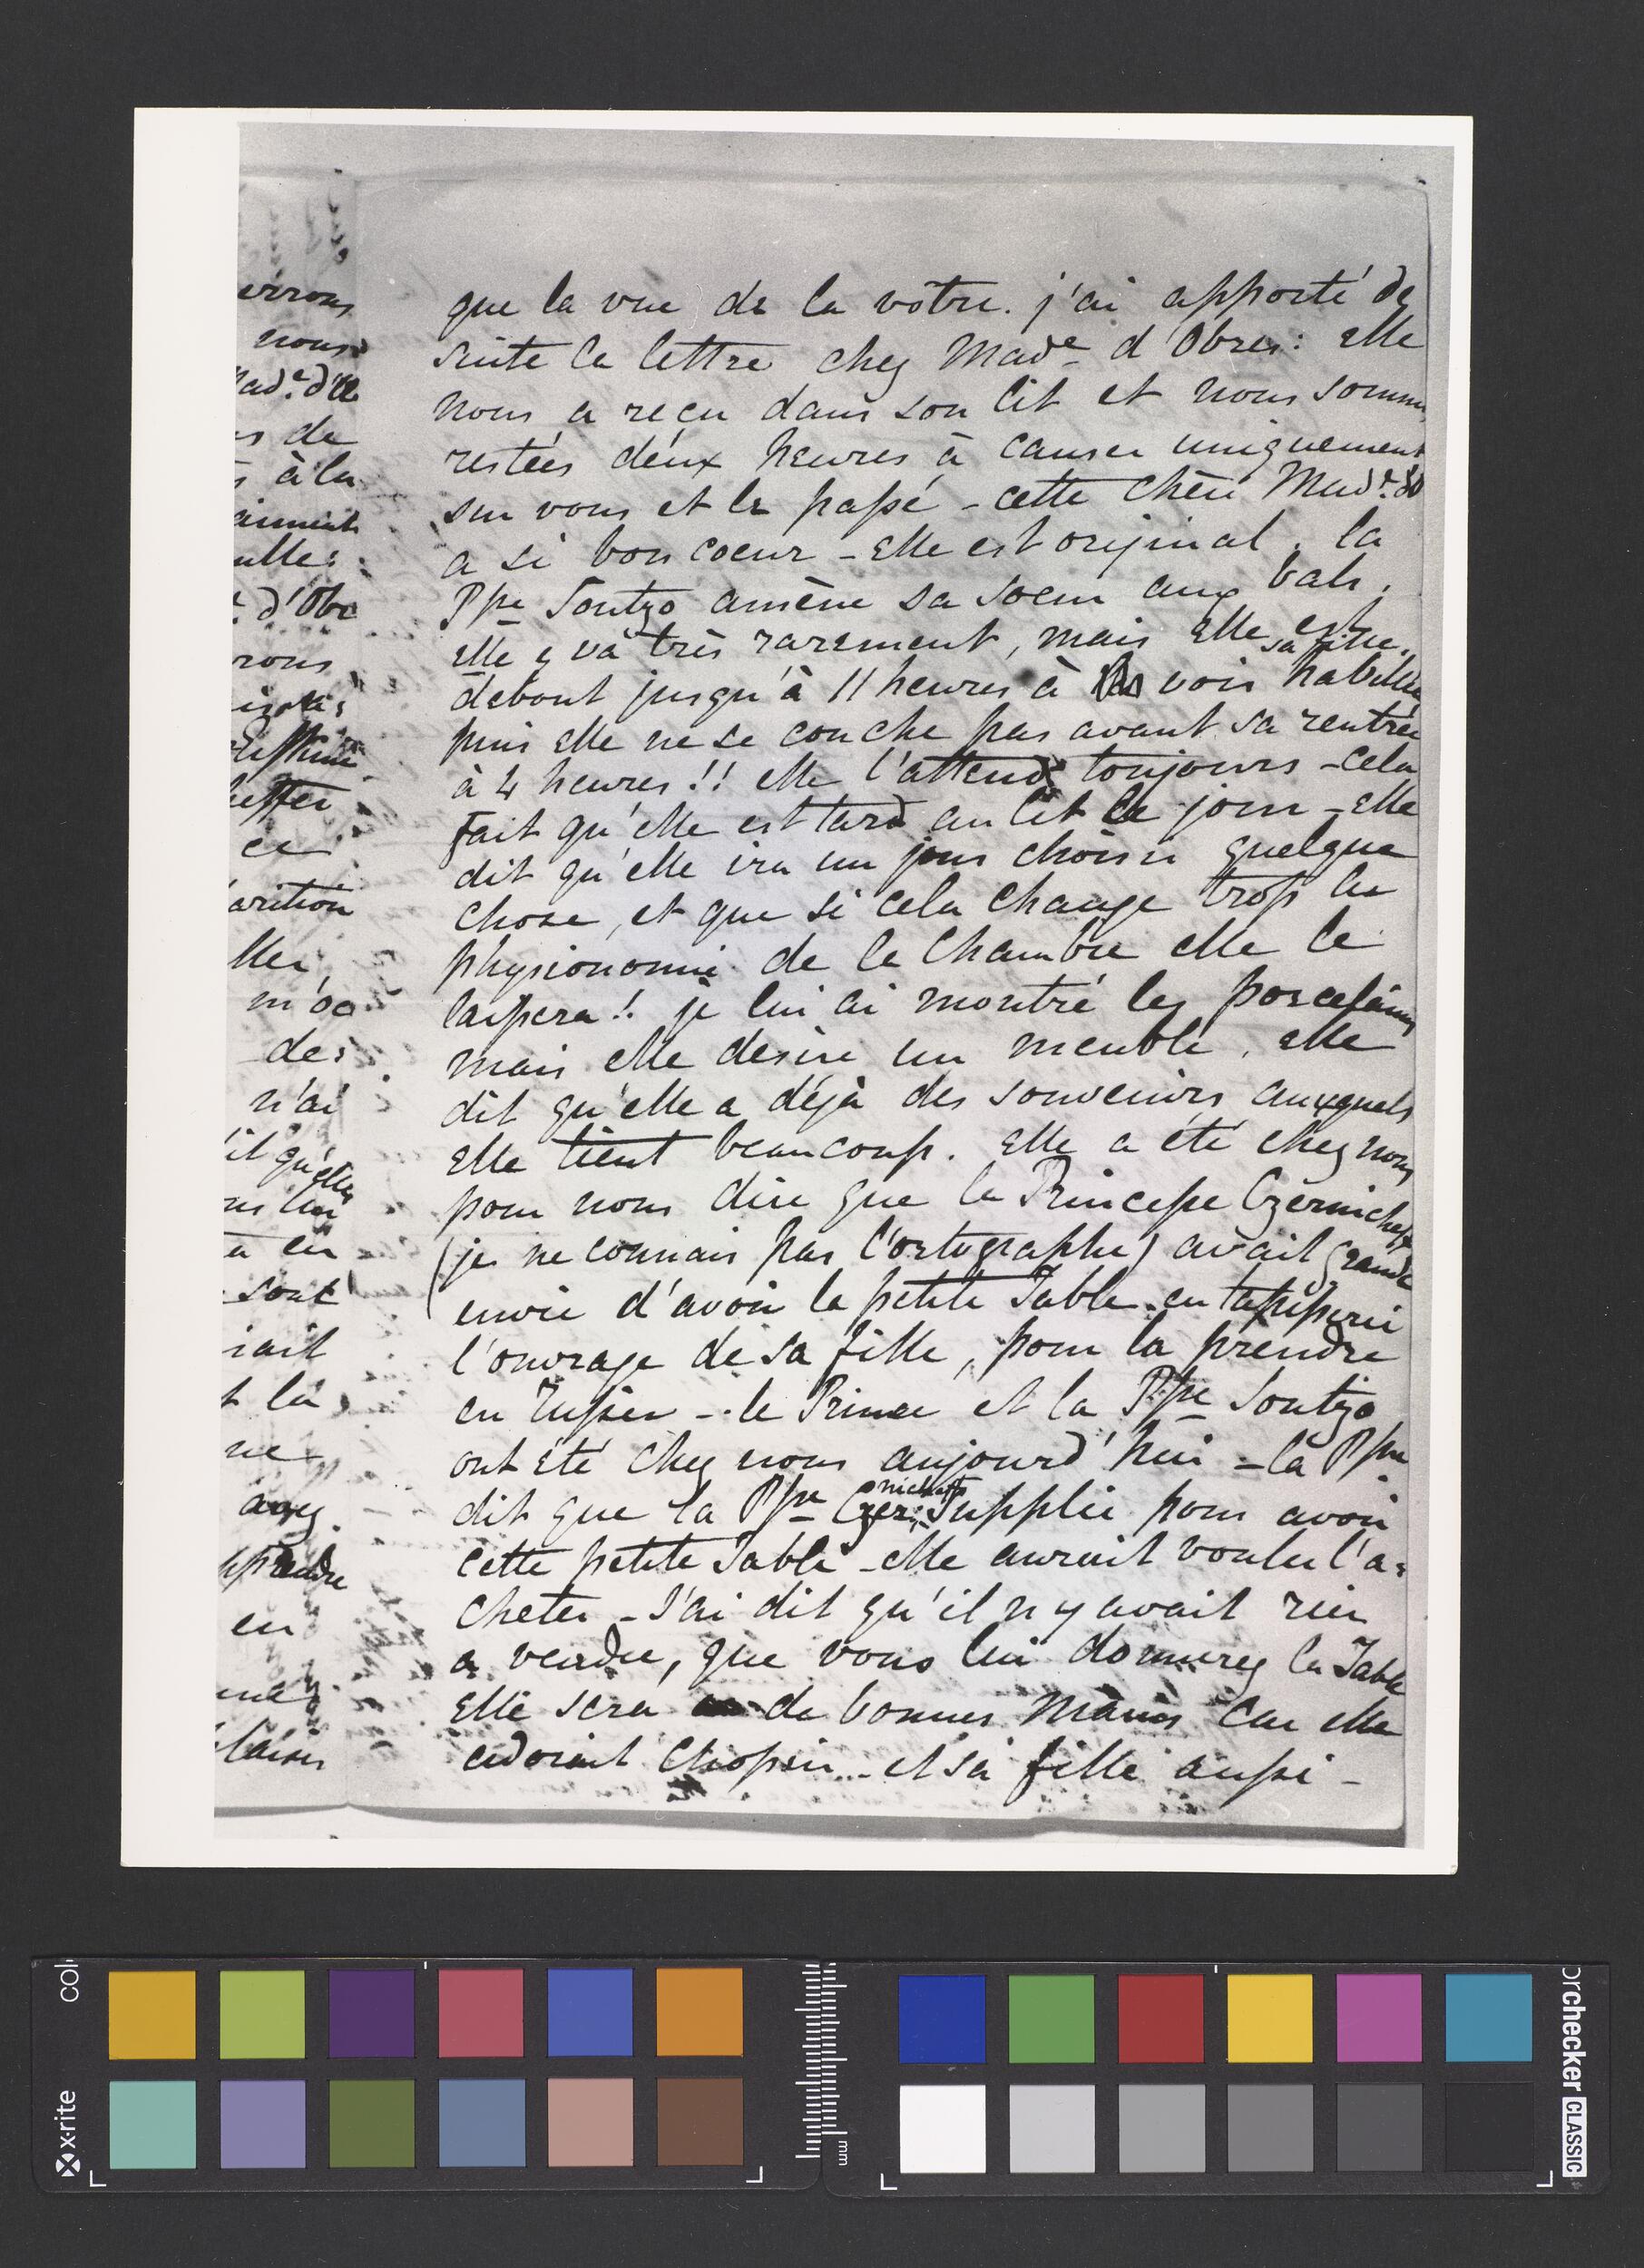 que la vue de la vôtre. j'ai apporté de
suite la lettre chez Mad.e d'Obres: elle
nous a reçu dans son lit et nous somm
restées deux heures à causer uniquement
sur vous et le passé - cette chère Mad.e d'O
a si bon coeur - elle est original. la
Pssse Soutzo amène sa soeur aux bals,
elle y va très rarement, mais elle est
debout jusqu'à 11 heures à voir sa fille habillée
puis elle ne se couche pas avant sa rentrée
à 4 heures!! elle l'attend toujours - cela
fait qu'elle est tard au lit le jour - elle
dit qu'elle ira un jour choisir quelque
chose, et que si cela change trop la
physionomie de la chambre elle le
laissera! je lui ai montré les porcelaines
mais elle désire un meuble. elle
dit qu'elle a déjà des souvenirs auxquels
elle tient beaucoup. elle a été chez nous
pour nous dire que la Princesse Czernicheff
(je ne connais pas l'ortographe) avait grande
envie d'avoir la petite Table en tapisserie
l'ouvrage de sa fille, pour la prendre
en Russie - le Prince et la Psse Soutzo
ont été chez nous aujourd'hui - la Psse
dit que la Psse Czernicheff supplie pour avoir
cette petite Table - elle aurait voulu l'a=
cheter - J'ai dit qu'il n y avait rien
a vendre, que vous lui donnerez la Table
elle sera de bonnes mains car elle
adorait Chopin - et sa fille aussi -
virons
nous
ad.e d'O
de
à la
d'Obr
ce
des
n'ai
il qu'elle
en
sont
ait
la
ne
en